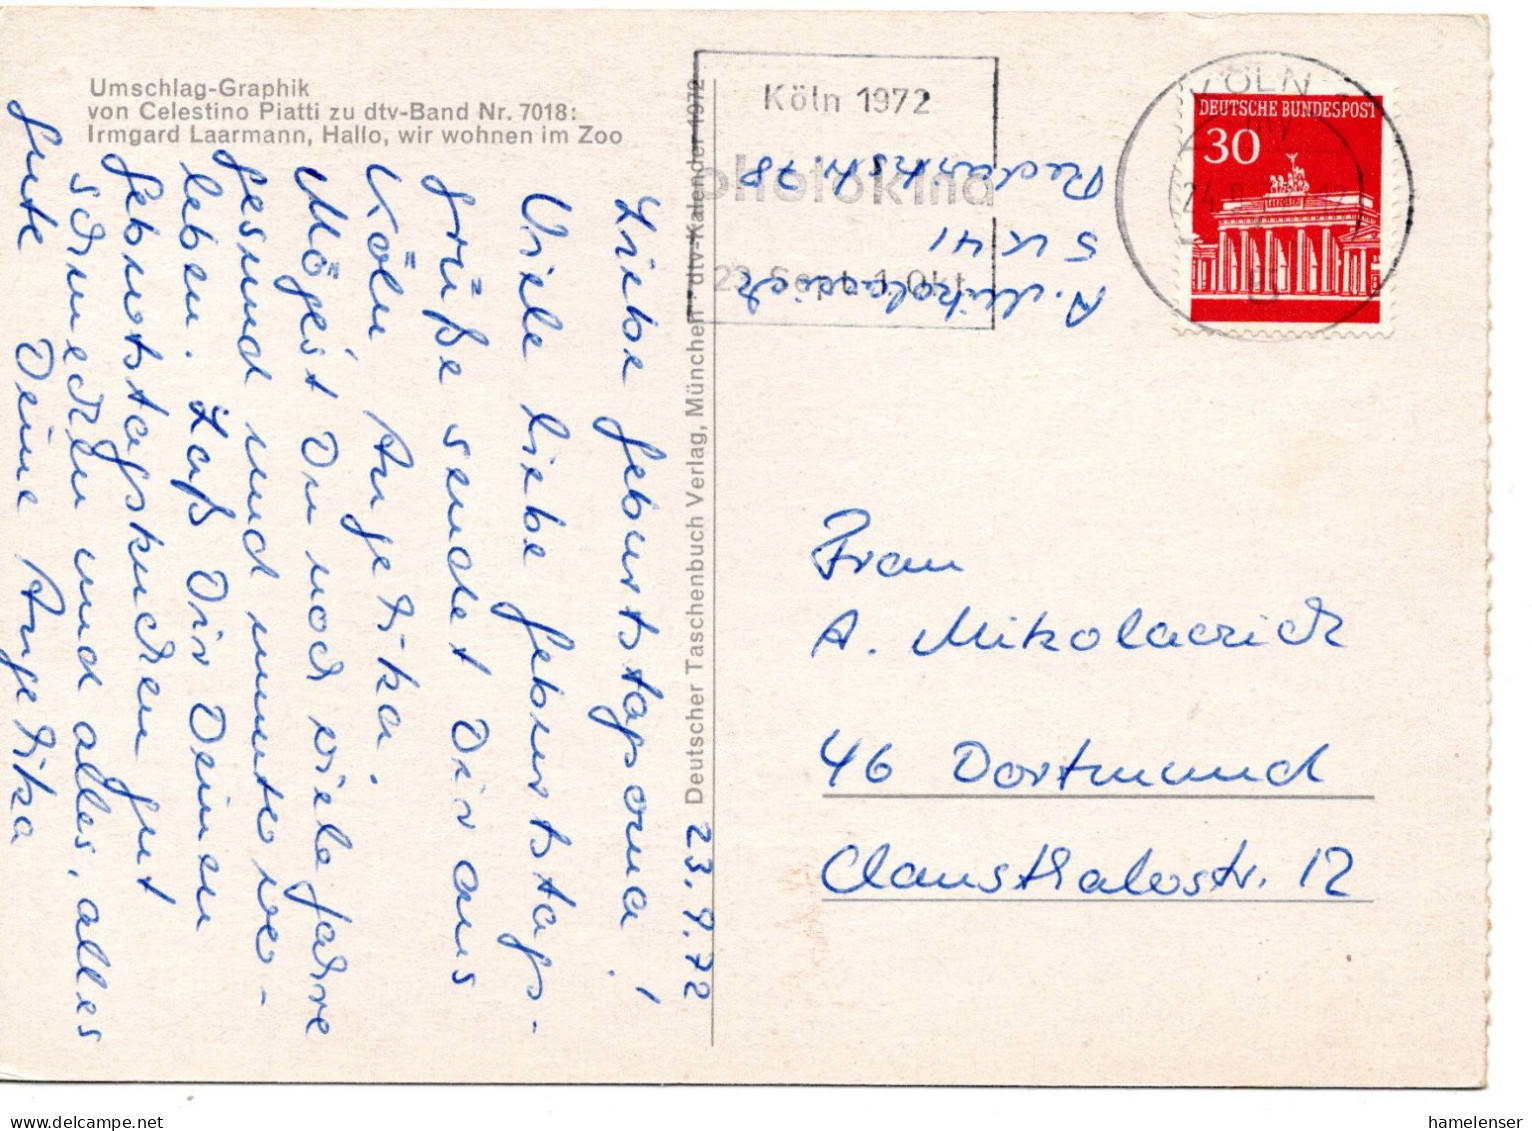 Umschlag-Graphik
von Celestino Piatti zu dtv-Band Nr. 7018:
Irmgard Laarmann, Hallo, wir wohnen im Zoo
23.9.72
Liebe Geburtstagsoma!
Viele liebe Geburtstags-
grüße sendet Dir aus
Köln Angelika.
Mögest Du noch viele Jahre
gesund und munter ver-
leben. Laß Dir Deinen
Geburtstagskuchen gut
schmecken und alles, alles
Gute Deine Angelika
Deutscher Taschenbuch Verlag, München · dtv-Kalender 1972
Köln 1972
photokina
23. Sept.-1. Okt.
A. Mikolaczick
5 K 41
78
KÖLN
24
DEUTSCHE BUNDESPOST
30
Frau
A. Mikolaczick
46 Dortmund
Clausthalerstr. 12
hamelenser
www.delcampe.net